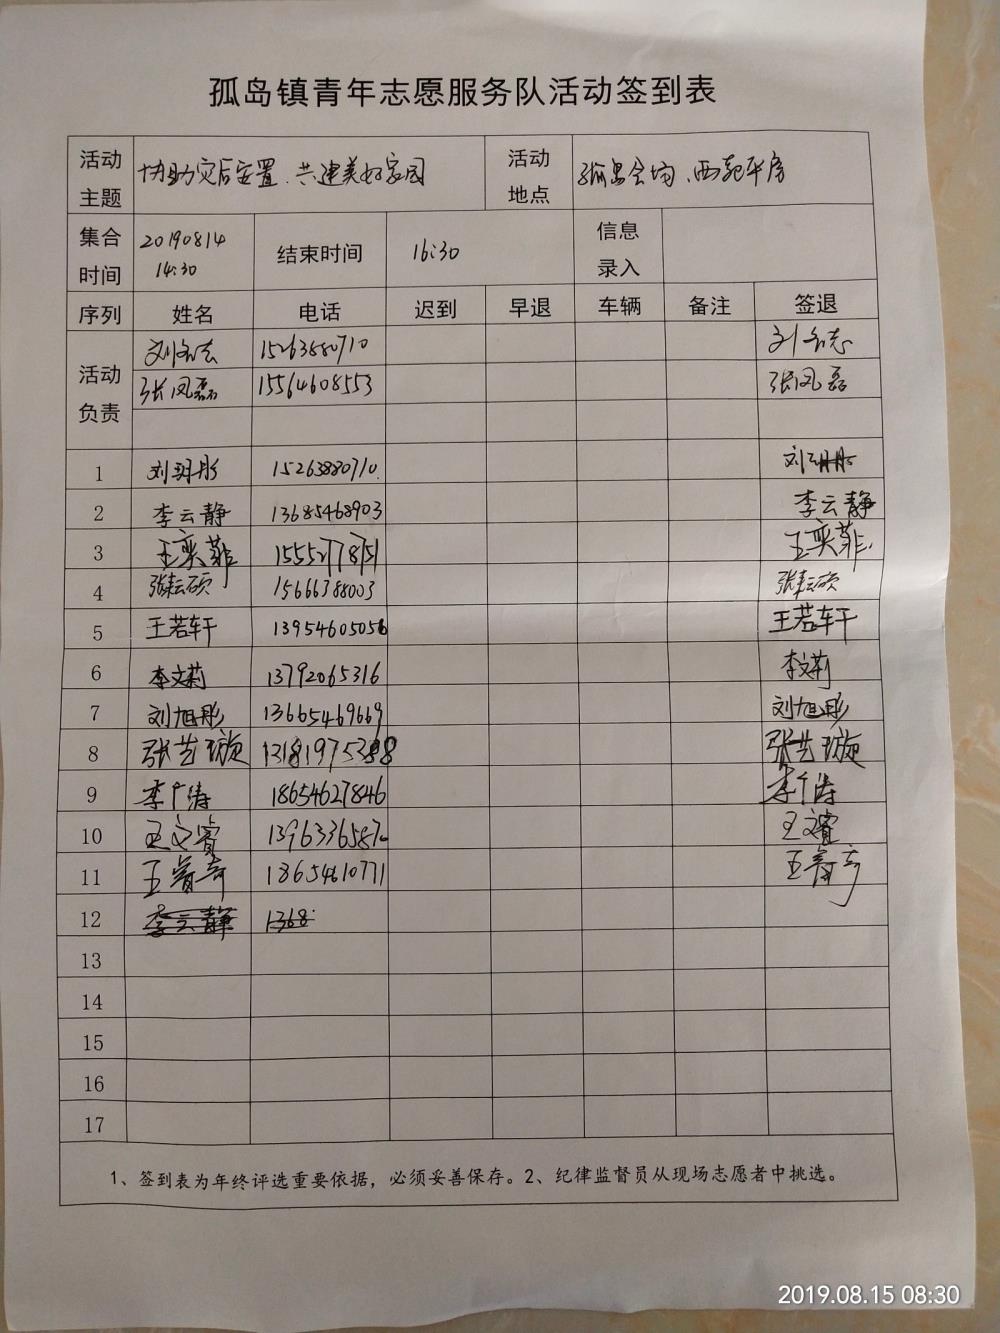 孤岛镇青年志愿服务队活动签到表
活动主题 协助灾后安置、共建美好家园 活动地点 孤岛会场、西苑平房
集合时间 20190814 14:30 结束时间 16:30 信息录入
序列 姓名 电话 迟到 早退 车辆 备注 签退
活动负责 刘名志 15263880710 刘名志
张凤磊 15564608553 张凤磊
1 刘玥彤 15263880710 刘玥彤
2 李云静 13685468903 李云静
3 王奕菲 15552778751 王奕菲
4 张耘硕 15666388003 张耘硕
5 王若轩 13954605056 王若轩
6 李文莉 13792065316 李文莉
7 刘旭彤 13665469669 刘旭彤
8 张艺璇 13181975388 张艺璇
9 李广涛 18654627846 李广涛
10 王文睿 王文睿
11 王睿奇 18654610771 王睿奇
12 李云静 1368
13
14
15
16
17
1、签到表为年终评选重要依据，必须妥善保存。2、纪律监督员从现场志愿者中挑选。
2019.08.15 08:30